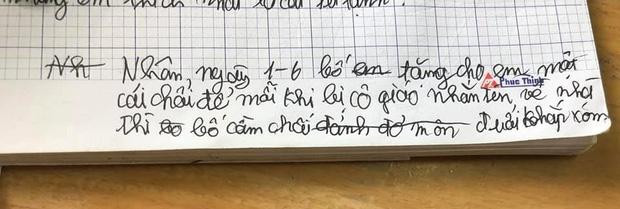 Nhân, ngày 1-6 bố em tặng cho em một
Phúc Thịnh
cái chổi để mỗi khi bị cô giáo nhắn tên, về nhà
thì bố cầm chổi đánh đở môn đuổi khắp xóm